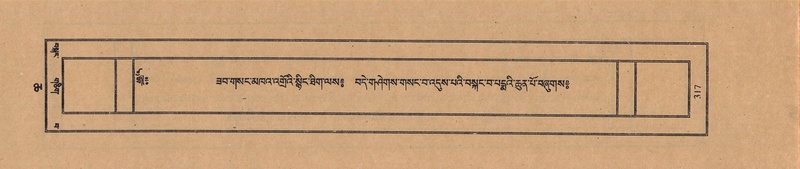 ཟབ་གསང་མཁའ་འགྲོའི་སྙིང་ཐིག་ལས༔ བདེ་གཤེགས་གསང་བ་འདུས་པའི་བསྐང་བ་པདྨའི་ཆུན་པོ་བཞུགས༔
317